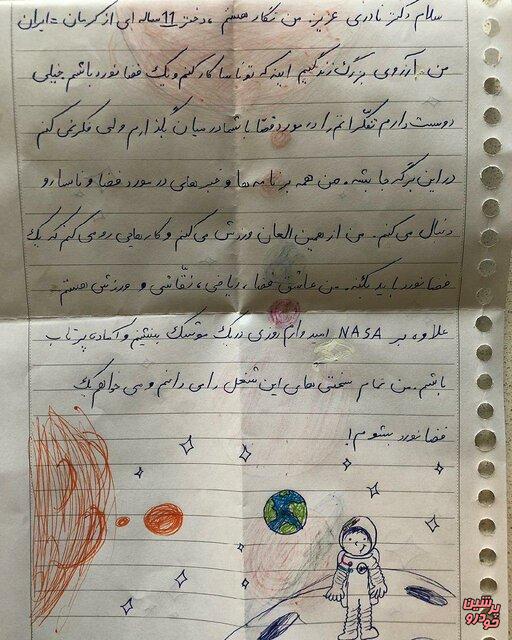 سلام دکتر نادری عزیز. من نگار هستم، دختر 11 ساله ای از کرمان - ایران
من آرزوی بزرگ زندگیم اینه که تو ناسا کار کنم و یک فضا نورد باشم خیلی
دوست دارم تفکراتم را در مورد فضا با شما در میان بگذارم ولی فکر نمی کنم
در این برگه جا بشه. من همه برنامه ها و خبر های در مورد فضا و ناسا رو
دنبال می کنم. من از همین الان ورزش می کنم و کارهایی رو می کنم که یک
فضا نورد باید بکنه. من عاشق فضا، ریاضی، نقّاشی و ورزش هستم
علاوه بر NASA امیدوارم روزی در یک موشک بشینم و آماده پرتاب
باشم. من تمام سختی های این شغل را می دانم و می خواهم یک
فضا نورد بشوم!
پرشین
خودرو